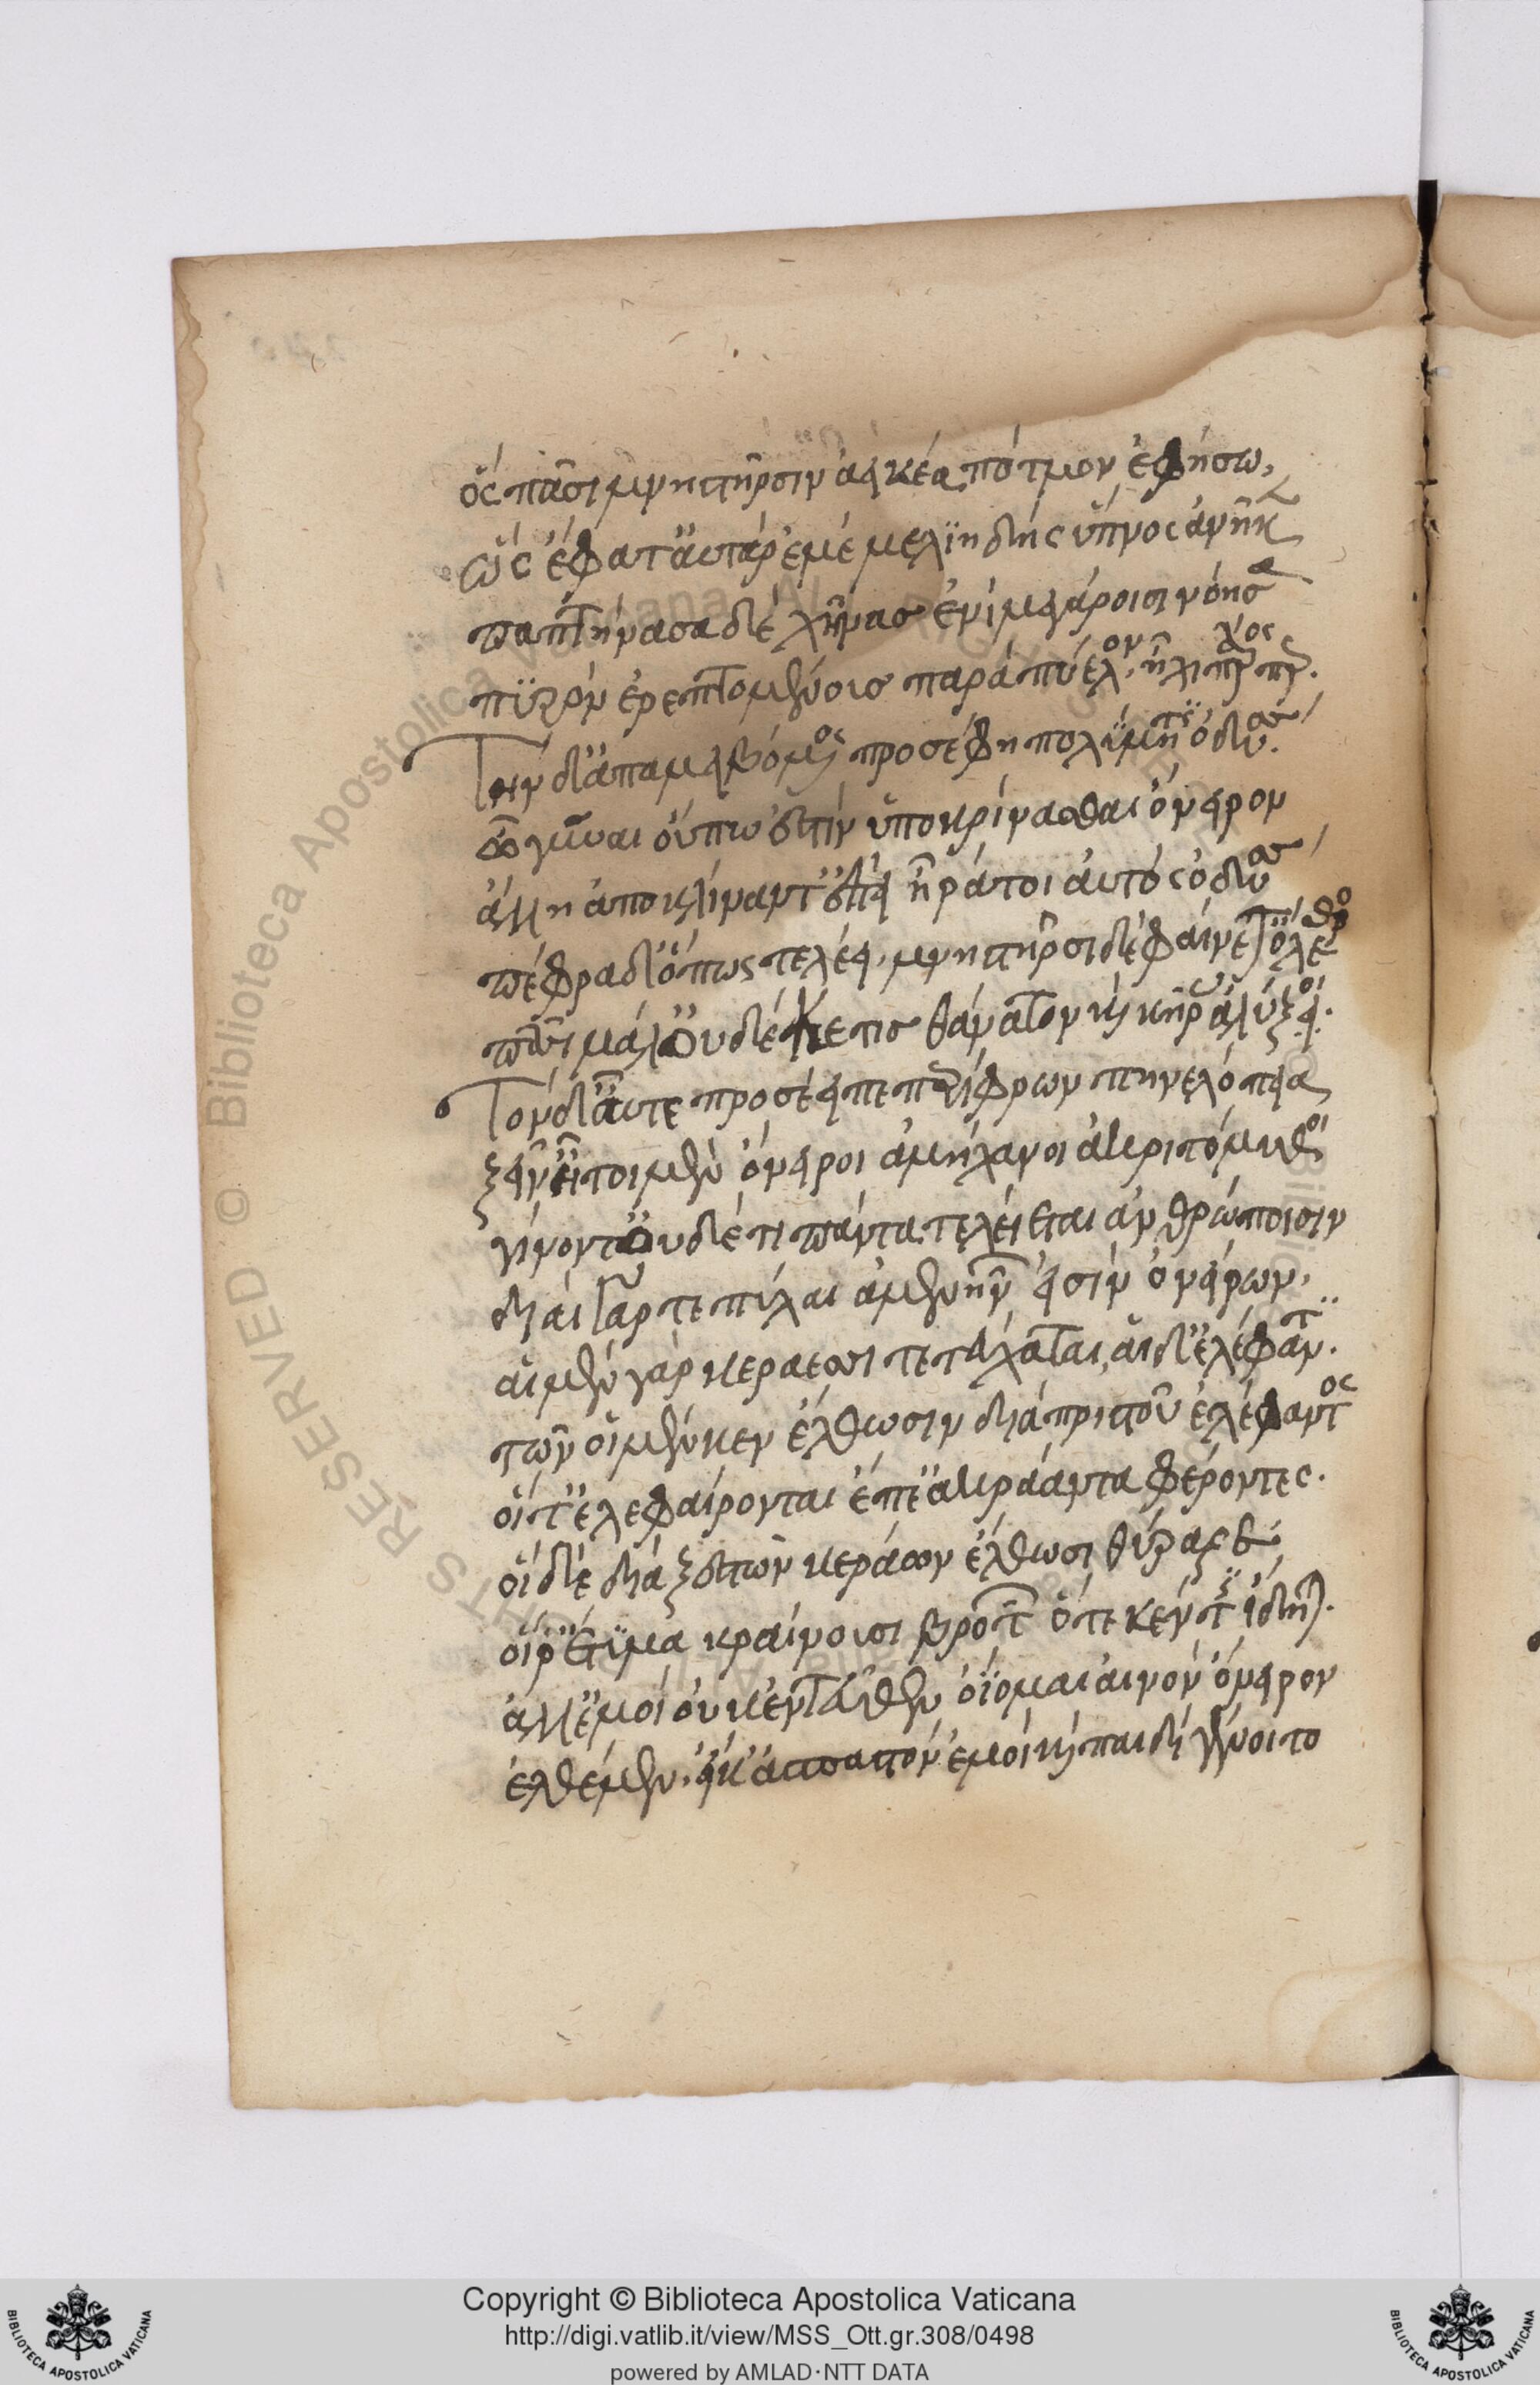 ὃς πᾶσι μνηστῆρσιν ἀεικέα πότμον ἐφήσω,
ὣς ἔφατ αὐτὰρ ἐμὲ μελιηδὴς ὕπνος ἀνῆκ
παπτήνασα δὲ χῆνας ἐνὶ μεγάροισι νόησα
πυρὸν ἐρεπτομένους παρὰ πύελον, ἧχι πάρος περ.
Τὴν δ' ἀπαμειβόμενος προσέφη πολύμητις ὀδυσεύς.
ὦ γύναι οὔπω ἔστιν ὑποκρίνασθαι ὄνειρον
ἄλλη ἀποκλίναντ' ἐπεὶ ἦ ῥά τοι αὐτὸς ὀδυσεύς
πέφραδ' ὅπως τελέει, μνηστῆρσι δὲ φαίνετ' ὄλεθρος
πᾶσι μάλ' οὐδέ κέ τις θάνατον καὶ κῆρας ἀλύξει.
Τὸν δ' αὖτε προσέειπε περίφρων πηνελόπεια
ξεῖν' ἤτοι μὲν ὄνειροι ἀμήχανοι ἀκριτόμυθοι
γίνοντ' οὐδέ τι πάντα τελείεται ἀνθρώποισιν
δηαὶ γάρ τε πύλαι ἀμενηνῶν εἰσὶν ὀνείρων,
αἱ μὲν γὰρ κεράεσσι τετεύχαται, αἱ δ' ἐλέφαντι.
τῶν οἳ μέν κεν ἔλθωσιν διὰ πριστοῦ ἐλέφαντος
οἵ τ' ἐλεφαίρονται ἔπε' ἀκράαντα φέροντες.
οἱ δὲ διὰ ξεστῶν κεράων ἔλθωσι θύραζε
οἵ ῥ' ἔτυμα κραίνουσι βροτῶν ὅτε κέν τις ἴδηται.
ἀλλ' ἐμοὶ οὐκ ἐντεῦθεν ὀΐομαι αἰνὸν ὄνειρον
ἐλθέμεν, ἦ κ' ἀσπαστὸν ἐμοὶ καὶ παιδὶ γένοιτο
Copyright © Biblioteca Apostolica Vaticana
http://digi.vatlib.it/view/MSS_Ott.gr.308/0498
powered by AMLAD·NTT DATA